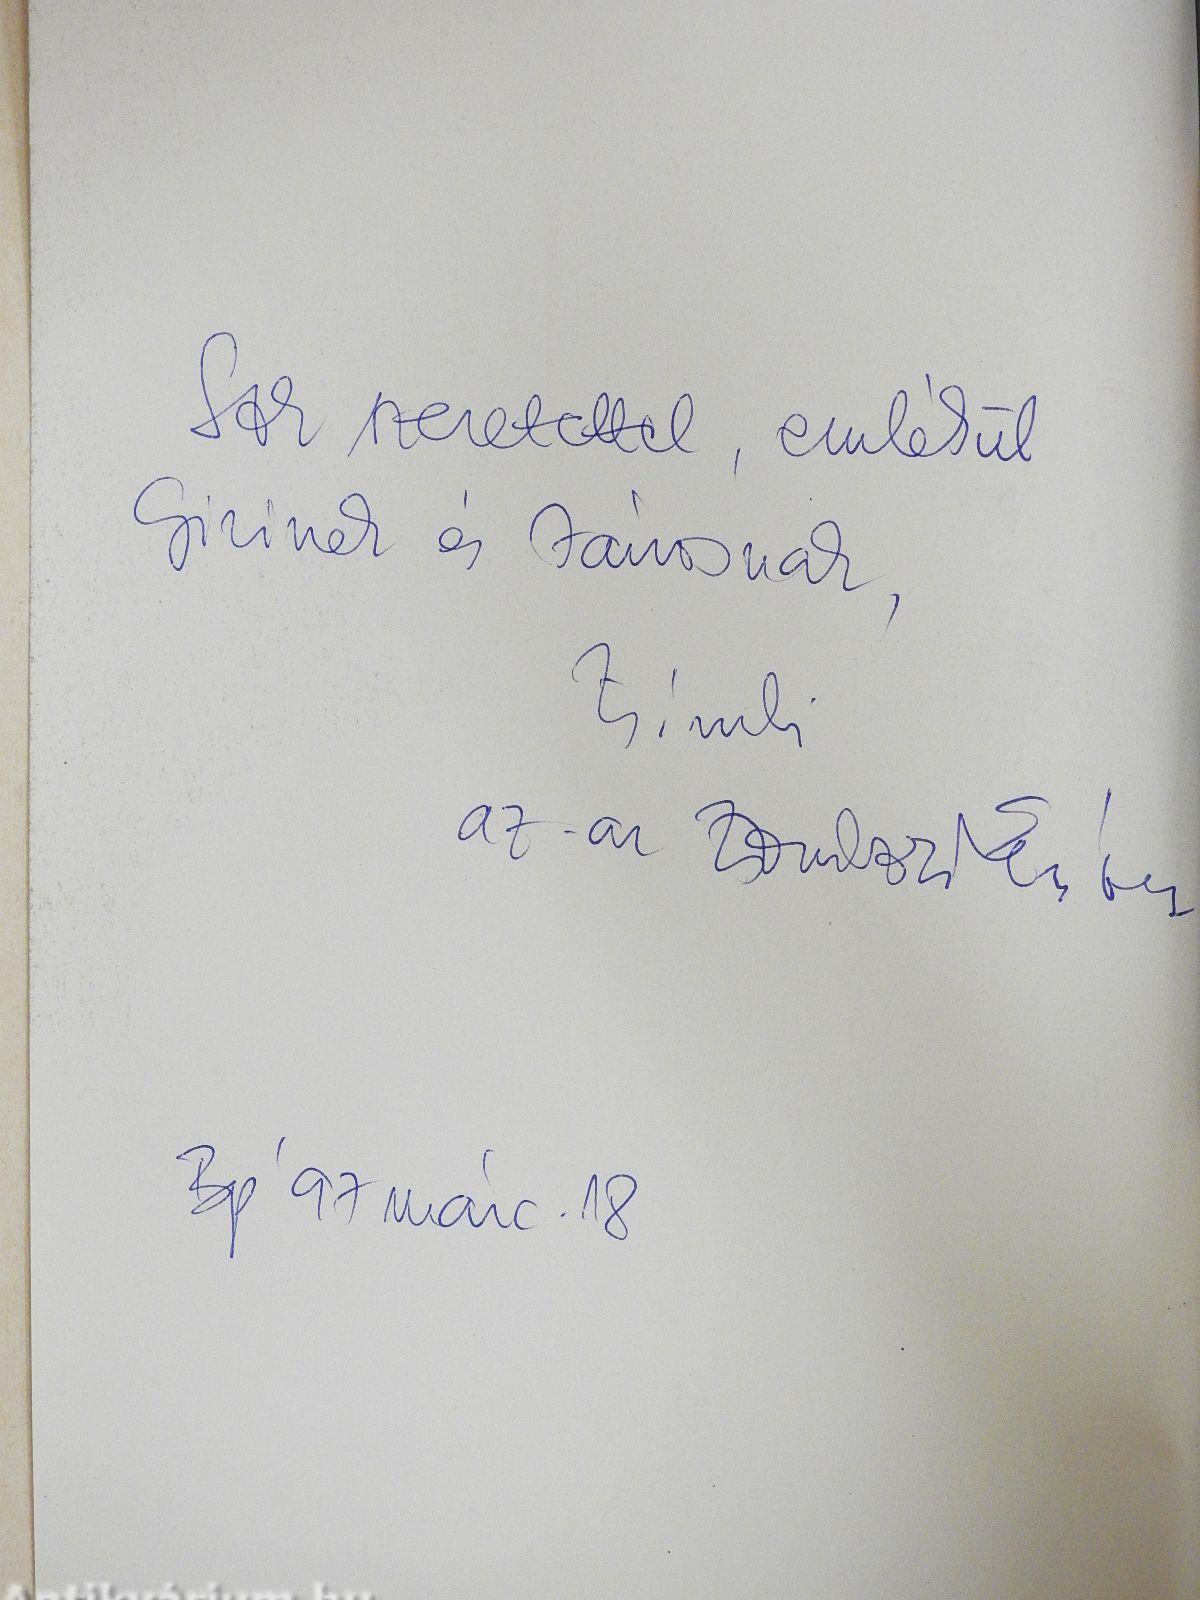 Sok szeretettel, emlékül
Gizinek és Jánosnak,
az-az
Bp '97 márc. 18
Antikvárium.hu